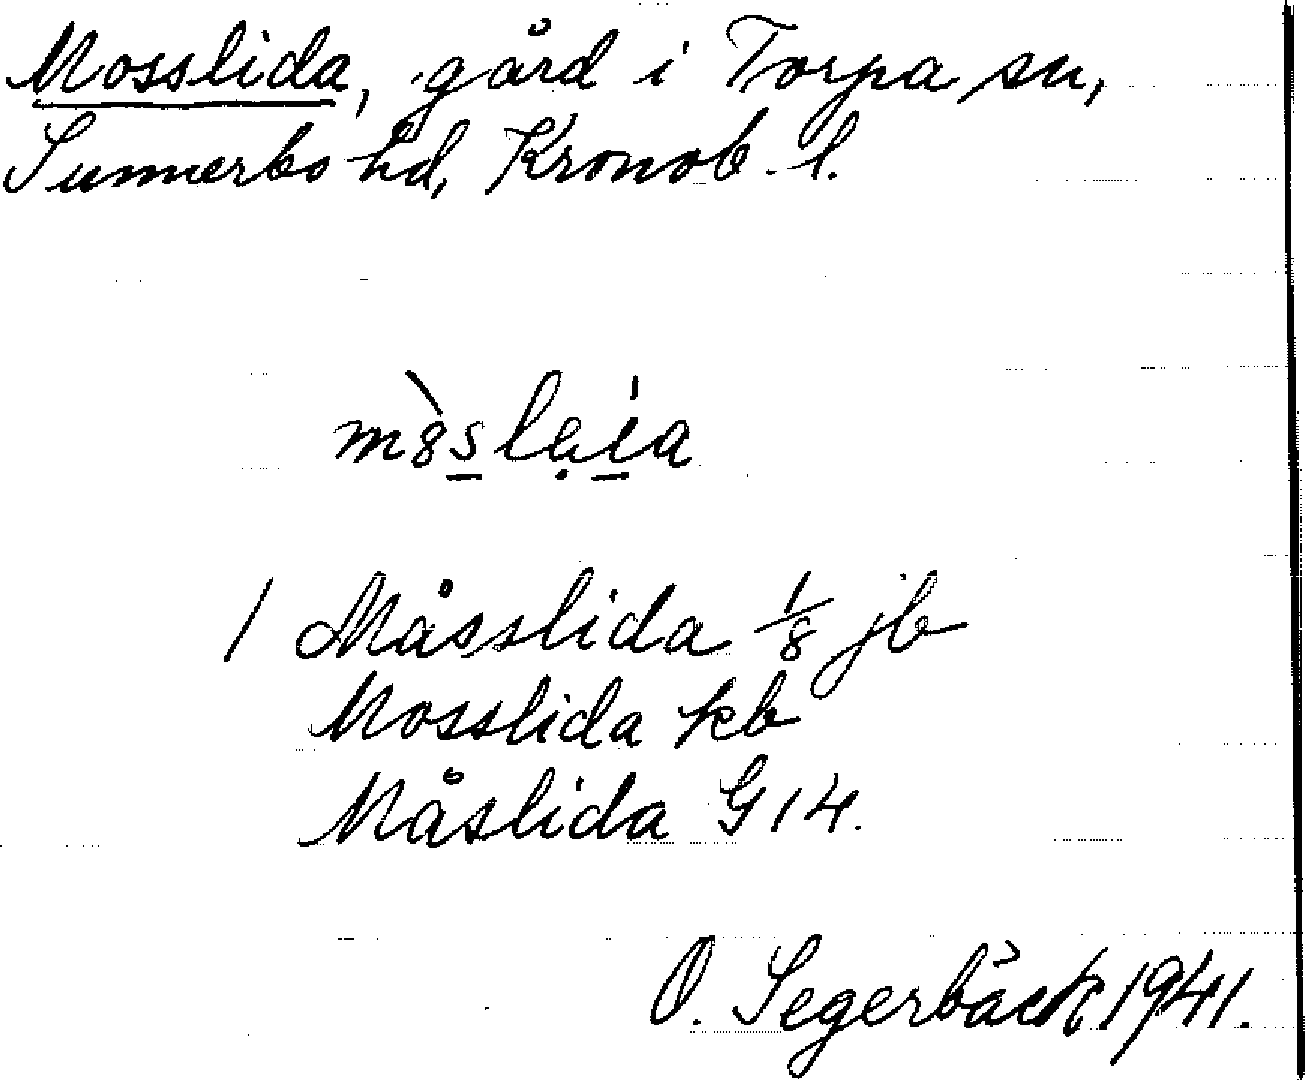 Mosslida, gård i Torpa sn,
Sunnerbo hd, Kronob. l.
1 Måsslida 1/8 jb
Mosslida kb
Måslida G 14.
O. Segerbäck 1941.